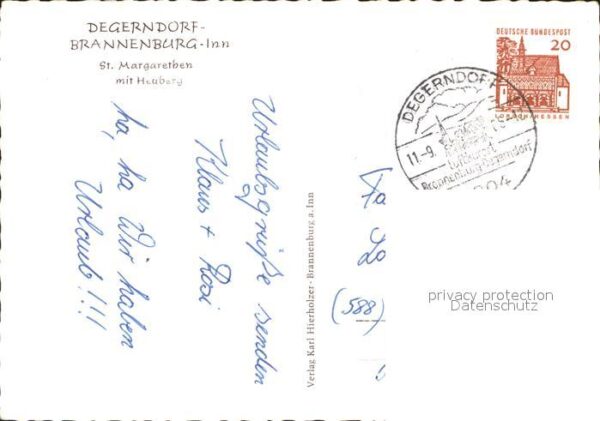 DEGERNDORF-
BRANNENBURG·Inn
St. Margarethen
mit Heuberg
Urlaubsgrüße senden
Klaus + Rosi
ha, ha Wir haben
Urlaub!!!
Verlag Karl Hierholzer · Brannenburg a. Inn
DEUTSCHE BUNDESPOST
20
DEGERNDORF
11.-9.
Luftkurort
Brannenburg-Degerndorf
Fa
(588)
privacy protection
Datenschutz